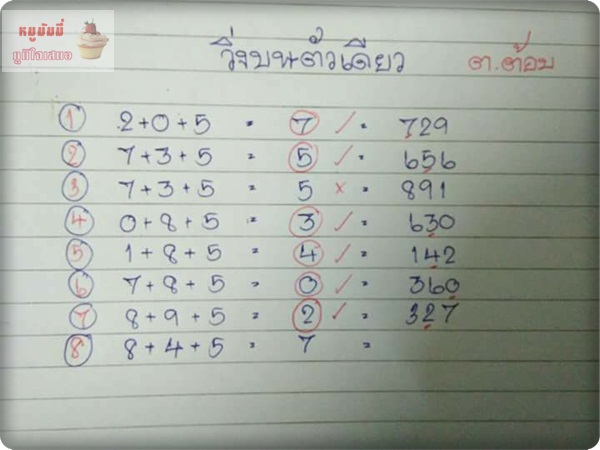 หมูมัมมี่
ภูมิใจเสนอ
วิ่งบนตัวเดียว ต.ต้อม
① 2+0+5 = 7 ✓ = 729
② 7+3+5 = 5 ✓ = 656
③ 7+3+5 = 5 × = 891
④ 0+8+5 = 3 ✓ = 630
⑤ 1+8+5 = 4 ✓ = 142
⑥ 7+8+5 = 0 ✓ = 360
⑦ 8+9+5 = 2 ✓ = 327
⑧ 8+4+5 = 7 =